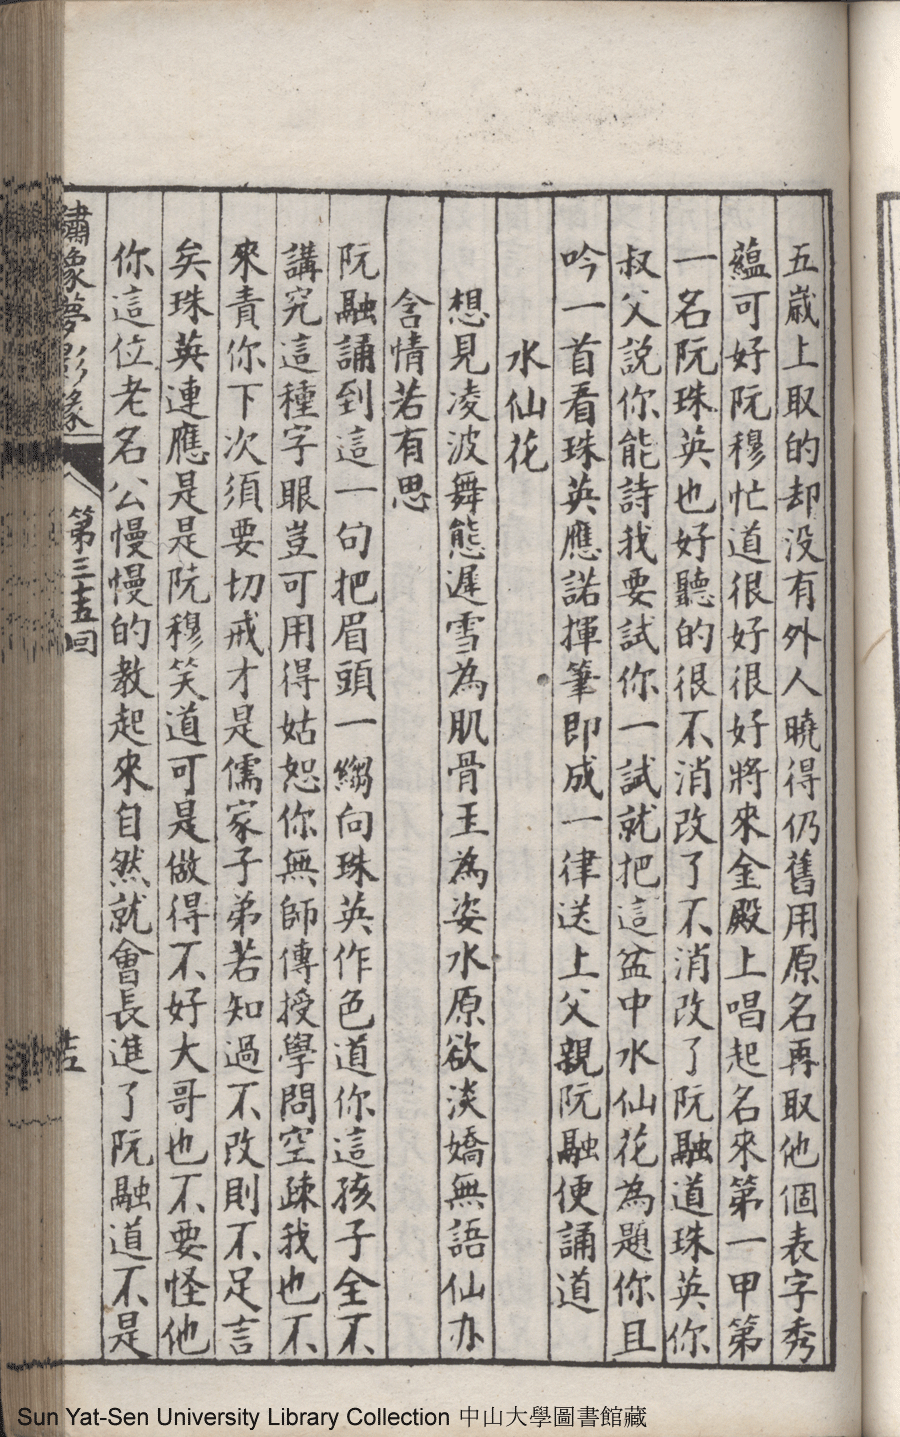 五歲上取的却没有外人曉得仍舊用原名再取他個表字秀
蘊可好阮穆忙道很好很好將來金殿上唱起名來第一甲第
一名阮珠英也好聽的很不消改了不消改了阮融道珠英你
叔父説你能詩我要試你一試就把這盆中水仙花為題你且
吟一首看珠英應諾揮筆即成一律送上父親阮融便誦道
水仙花
想見凌波舞態遲雪為肌骨玉為姿水原欲淡嬌無語仙亦
含情若有思
阮融誦到這一句把眉頭一縐向珠英作色道你這孩子全不
講究這種字眼豈可用得姑恕你無師傳授學問空疎我也不
來責你下次須要切戒才是儒家子弟若知過不改則不足言
矣珠英連應是是阮穆笑道可是做得不好大哥也不要怪他
你這位老名公慢慢的教起來自然就會長進了阮融道不是
繡像夢影緣
第三十五回
Sun Yat-Sen University Library Collection 中山大學圖書館藏